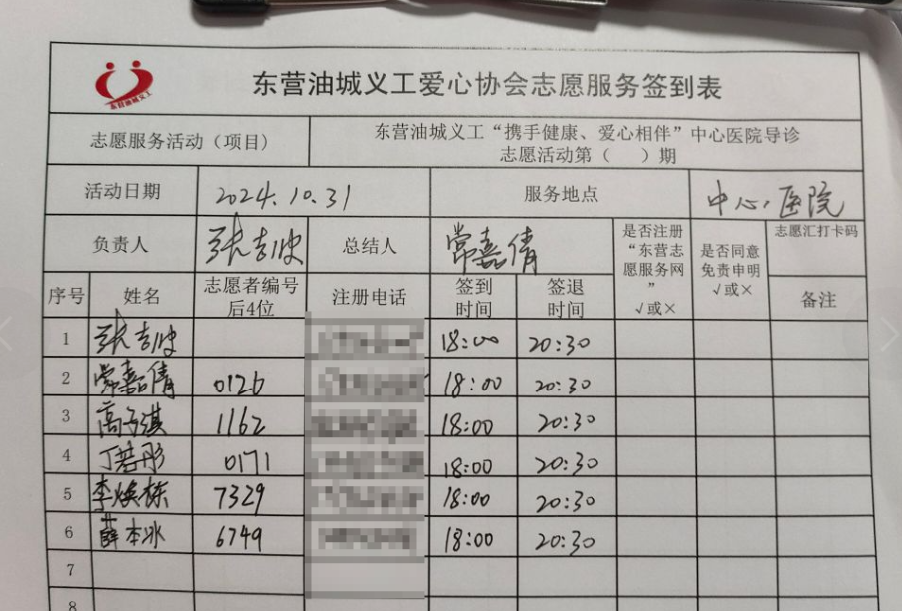 东营油城义工
东营油城义工爱心协会志愿服务签到表
志愿服务活动（项目）
东营油城义工“携手健康、爱心相伴”中心医院导诊
志愿活动第（ ）期
活动日期 2024.10.31 服务地点 中心医院
负责人 张吉波 总结人 常嘉倩
是否注册
“东营志
愿服务网
”
√或×
是否同意
免责申明
√或×
志愿汇打卡码
序号 姓名 志愿者编号
后4位
注册电话 签到
时间
签退
时间
备注
1 张吉波 18:00 20:30
2 常嘉倩 0126 18:00 20:30
3 高子淇 1162 18:00 20:30
4 丁若彤 0171 18:00 20:30
5 李焕栋 7329 18:00 20:30
6 薛本冰 6749 18:00 20:30
7
8